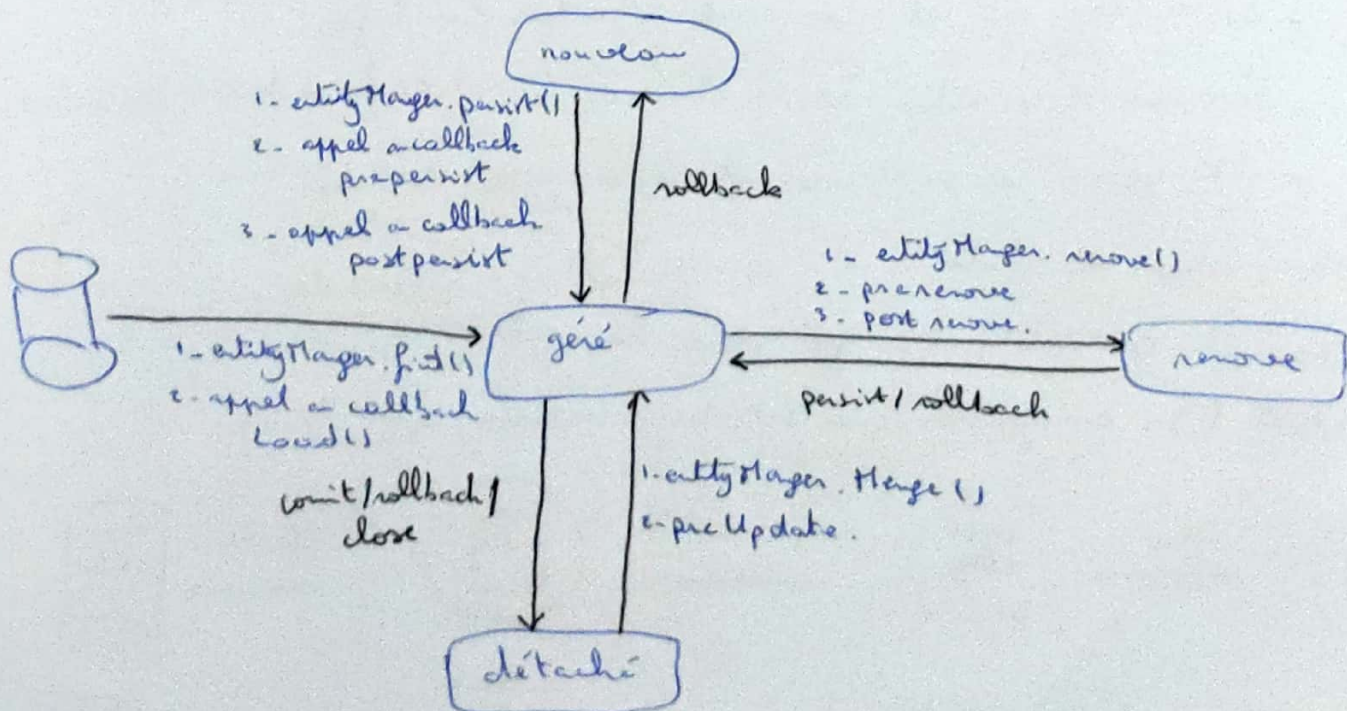 nouveau
1- entityManger.persist()
2- appel au callback
prepersist
3- appel au callback
postpersist
rollback
1- entityManger.remove()
2- preremove
3- post remove.
géré
1- entityManger.find()
2- appel au callback
Load()
removee
persist/rollback
comit/rollback/
close
1-entityManger.Merge()
2-preUpdate.
détaché